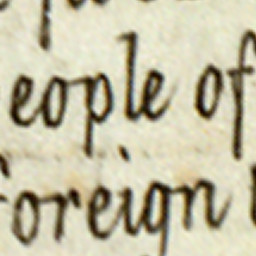 eople of
oreign